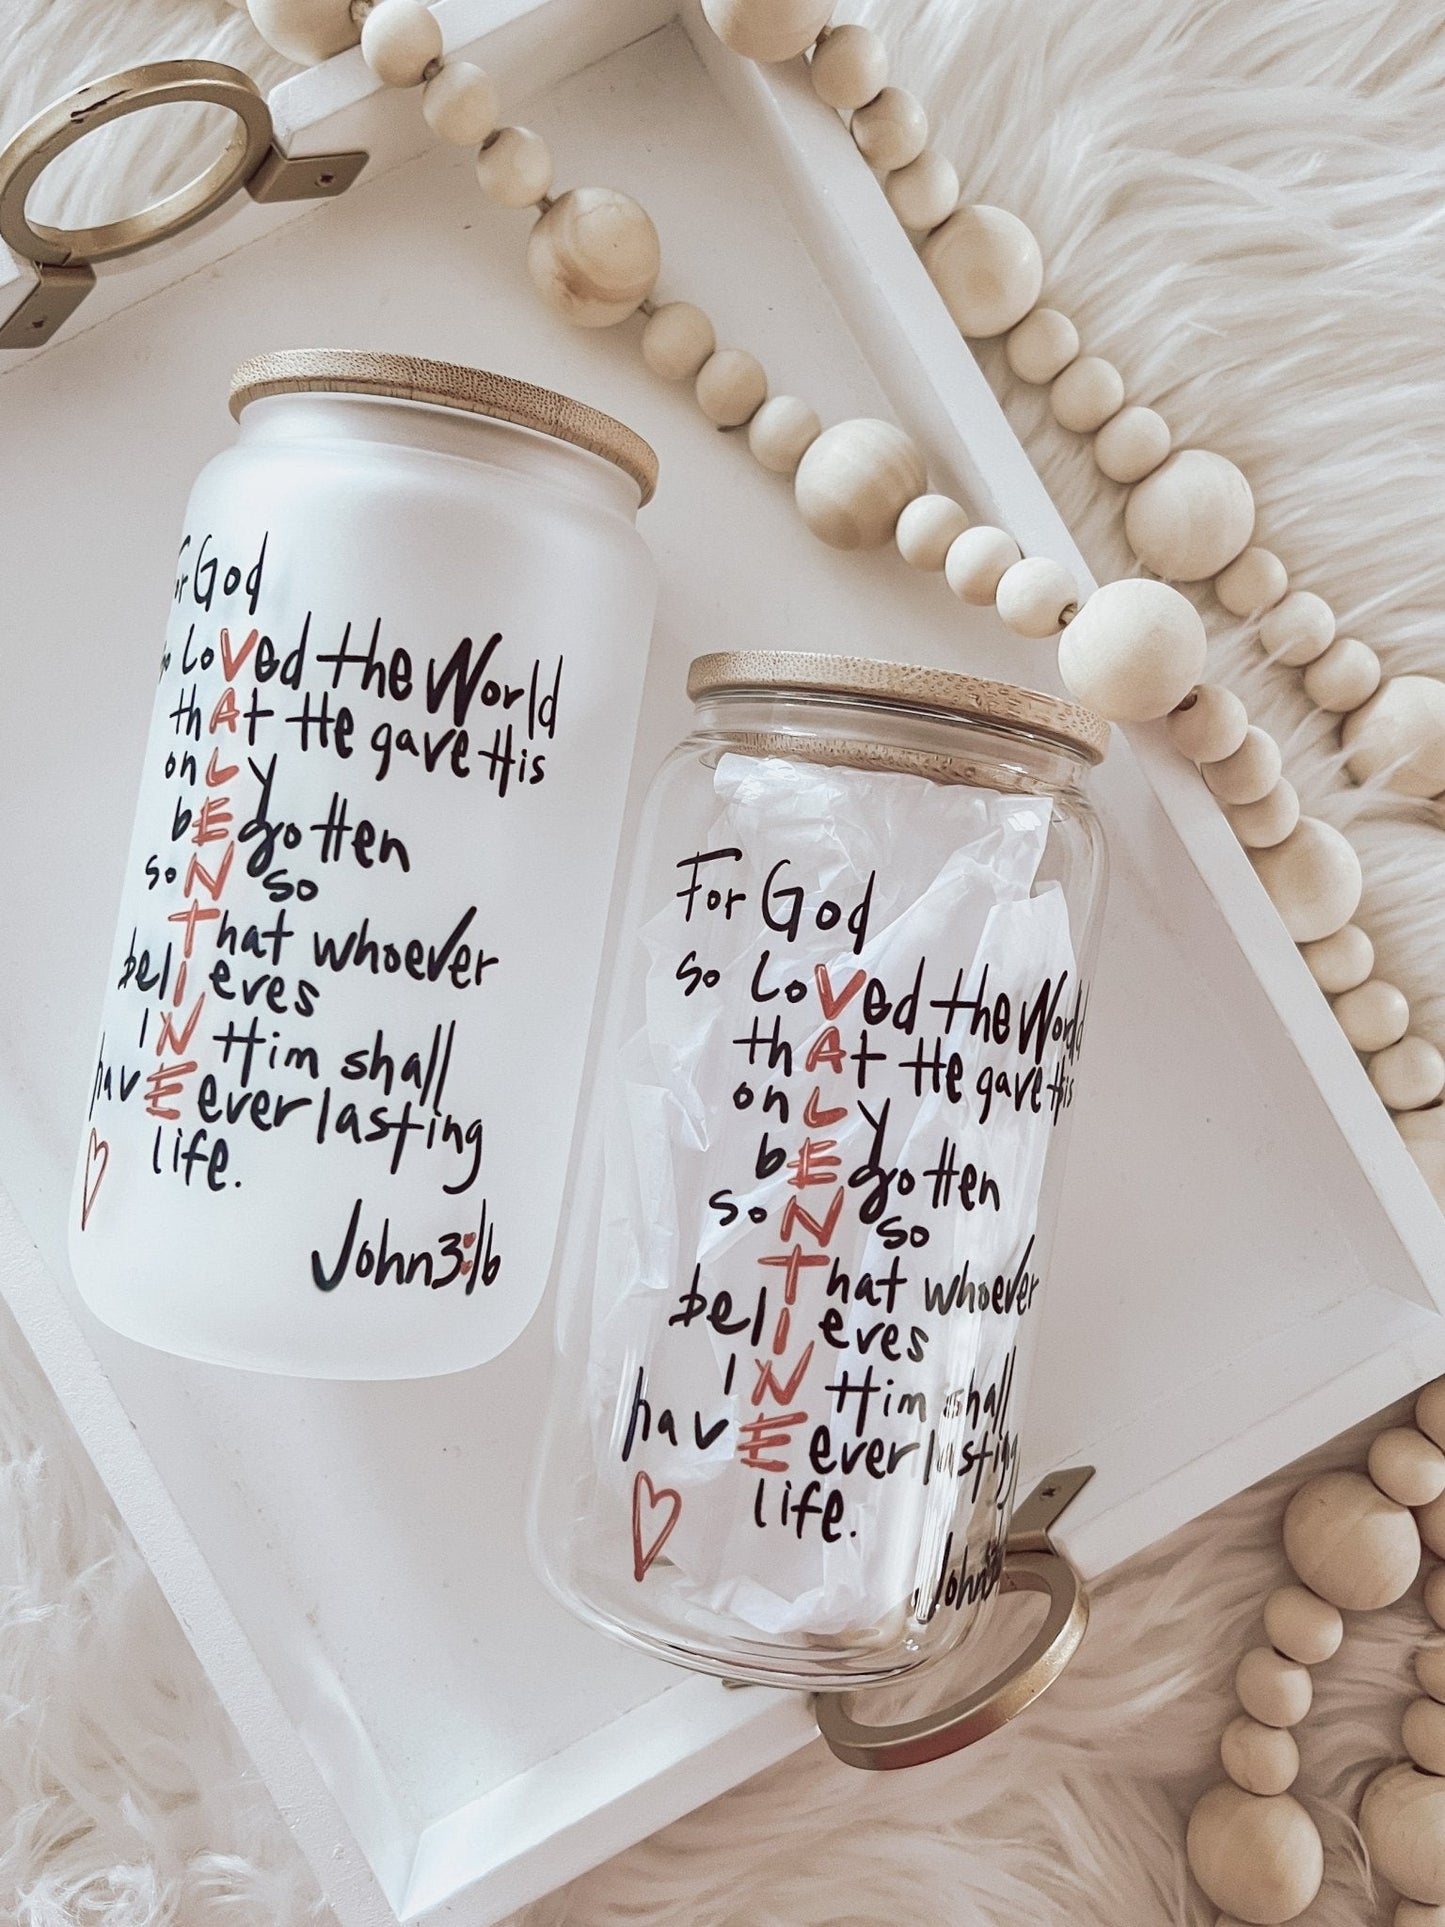 For God
so LoVed the World
thAt He gave His
onLy
bEgotten
soN so
That whoever
belIeves
IN Him shall
havE everlasting
life.
John3:16
For God
so LoVed the World
thAt He gave His
onLy
bEgotten
soN so
That whoever
belIeves
IN Him shall
havE everlasting
life.
John3